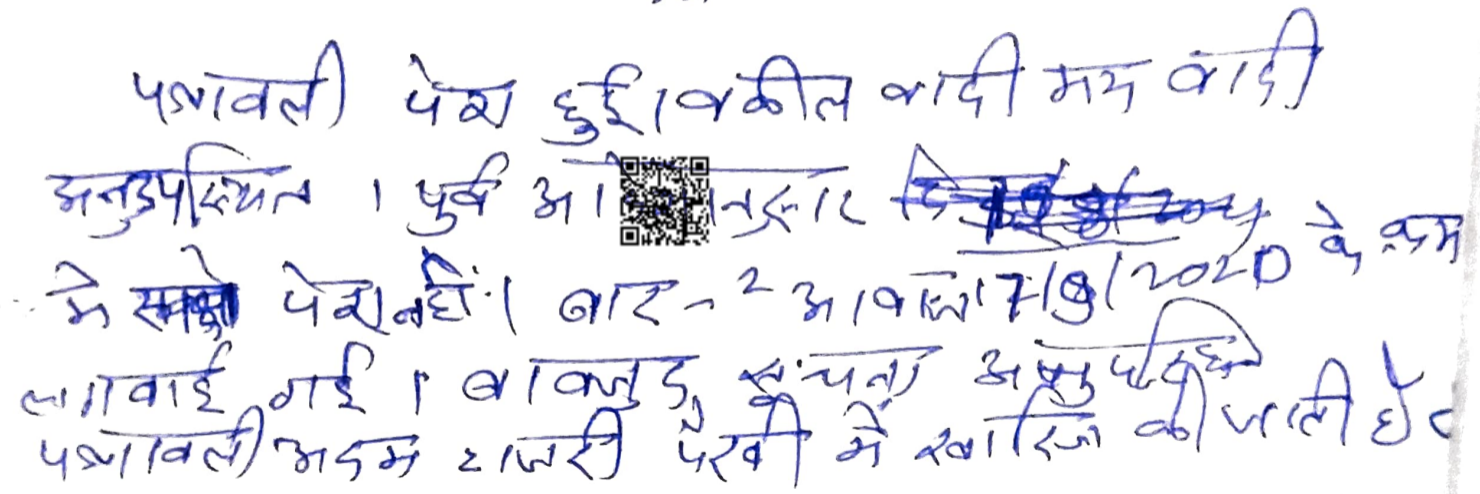 पत्रावली पेश हुई। वकील वादी मय वादी
अनुउपस्थित । पुर्व आ नुसार
के क्रम
में पेश नहीं । बार-२ आवाज 7/9/2020
लगवाई गई । बावजुद सुचना अनुपस्थित
पत्रावली अदम हाजरी पैरवी में खारिज की जाती है